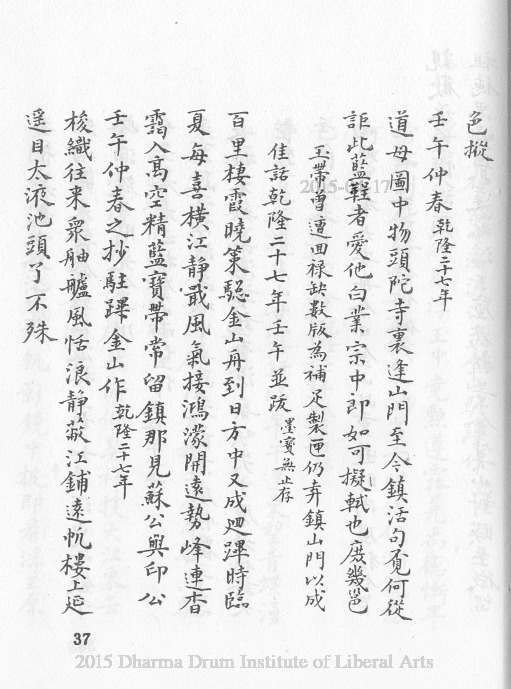 色摐
壬午仲春 乾隆二十七年
道母圖中物頭陀寺裏逢山門至今鎮活句覔何從
詎此藍鞓者愛他白業宗中郎如可擬軾也庶幾邕
玉帶曽遭回禄缺數版為補足製匣仍弆鎮山門以成
佳話乾隆二十七年壬午並跋 墨寳無止存
百里棲霞曉策驄金山舟到日方中又成廻蹕時臨
夏每喜橫江靜戢風氣接鴻濛開遠勢峰連杳
靄入髙空精藍寶帶常留鎮那見蘇公與印公
壬午仲春之抄駐蹕金山作 乾隆二十七年
梭織往来衆舳艫風恬浪静蔌江鋪遠帆樓上延
遥目太液池頭了不殊
37
2015 Dharma Drum Institute of Liberal Arts